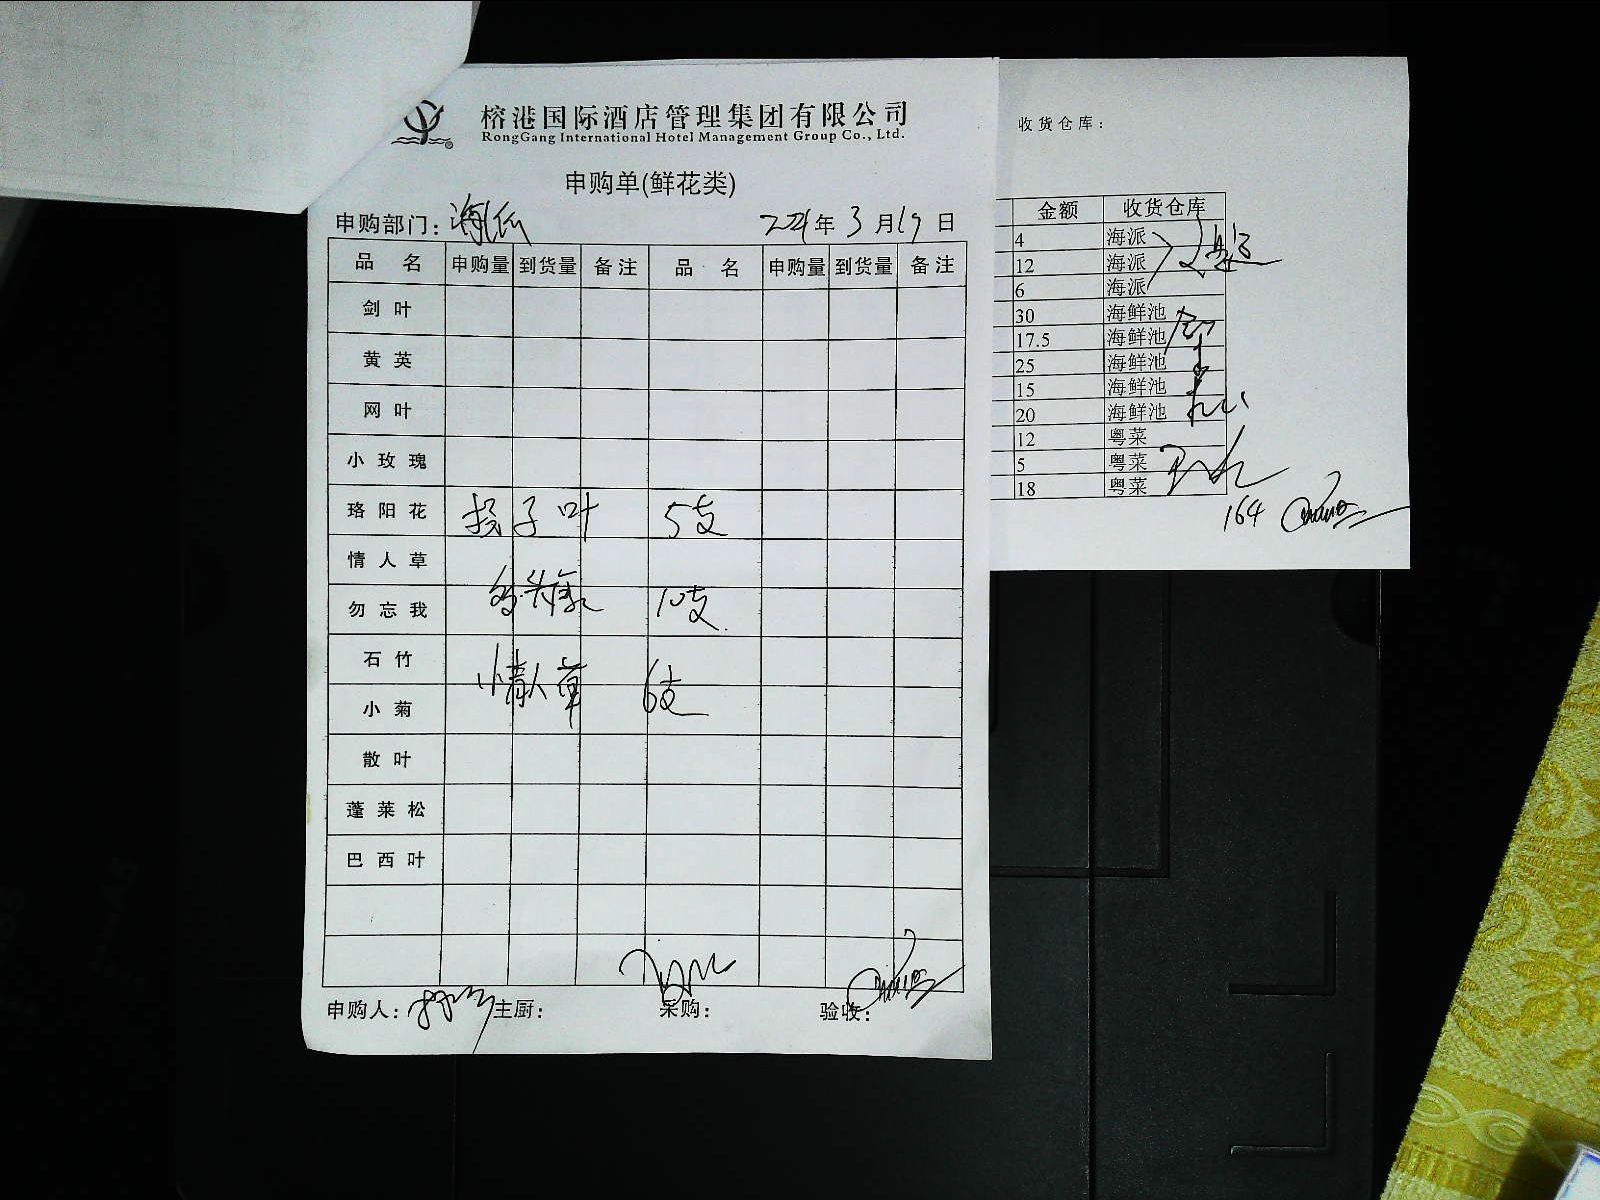 榕港国际酒店管理集团有限公司
RongGang International Hotel Management Group Co., Ltd.
申购单(鲜花类)
申购部门: 年 3 月 19 日
品 名 申购量 到货量 备注 品 名 申购量 到货量 备注
剑叶
黄英
网叶
小玫瑰
珞阳花 扬子叶 5支
情人草
勿忘我 10支
石竹
小菊 情人草 6支
散叶
蓬莱松
巴西叶
申购人: 主厨: 采购: 验收:
收货仓库:
金额 收货仓库
4 海派
12 海派
6 海派
30 海鲜池
17.5 海鲜池
25 海鲜池
15 海鲜池
20 海鲜池
12 粤菜
5 粤菜
18 粤菜
164